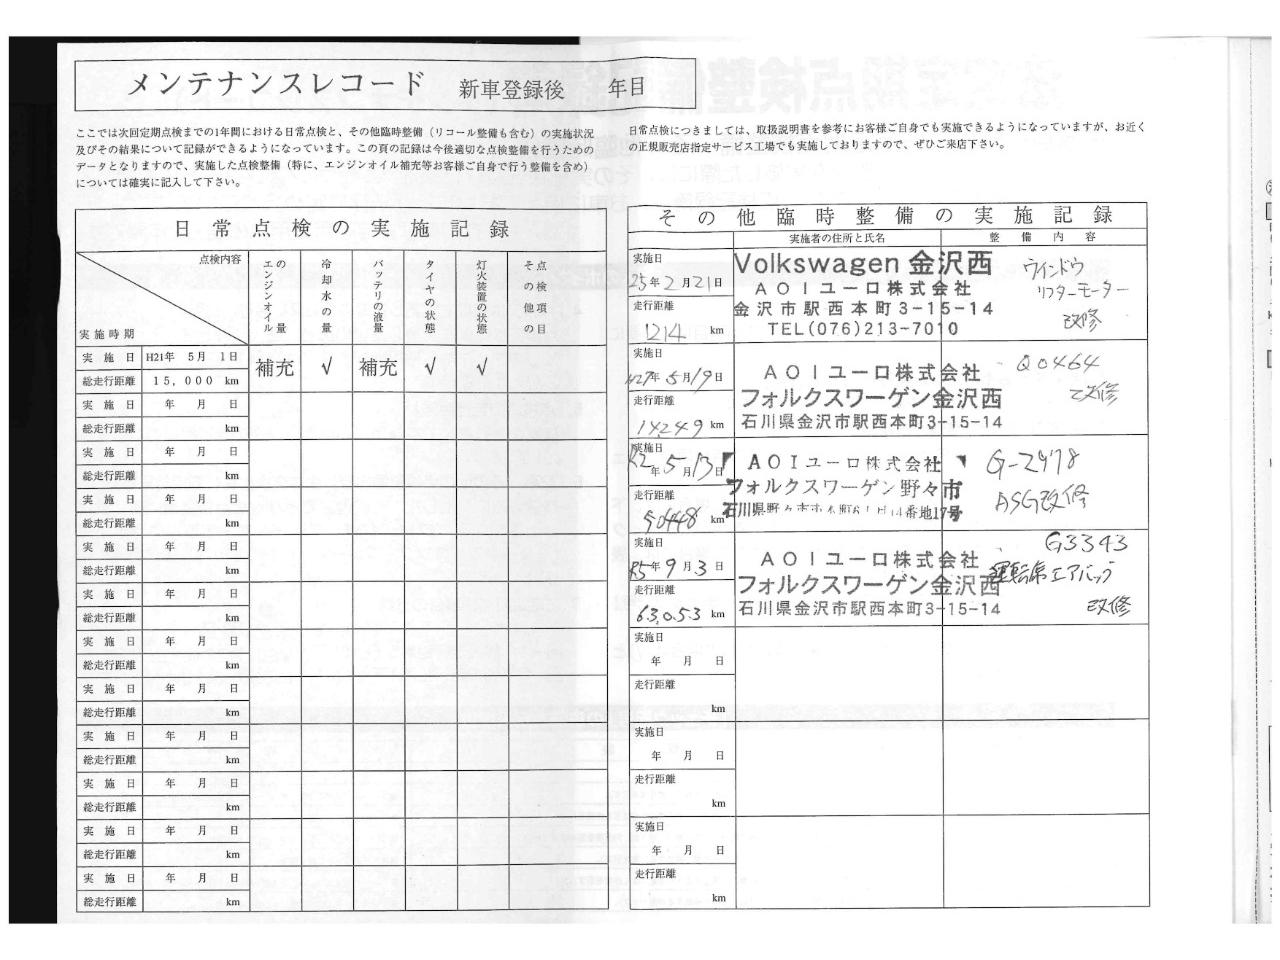 メンテナンスレコード 新車登録後 年目
ここでは次回定期点検までの1年間における日常点検と、その他臨時整備（リコール整備も含む）の実施状況
及びその結果について記録ができるようになっています。この頁の記録は今後適切な点検整備を行うための
データとなりますので、実施した点検整備（特に、エンジンオイル補充等お客様ご自身で行う整備を含め）
については確実に記入して下さい。
日常点検につきましては、取扱説明書を参考にお客様ご自身でも実施できるようになっていますが、お近く
の正規販売店指定サービス工場でも実施しておりますので、ぜひご来店下さい。
日常点検の実施記録
点検内容
実施時期
エンジンオイルの量
冷却水の量
バッテリの液量
タイヤの状態
灯火装置の状態
その他の点検項目
実施日 H21年 5月 1日 補充 √ 補充 √ √
総走行距離 15,000 km
実施日 年 月 日
総走行距離 km
実施日 年 月 日
総走行距離 km
実施日 年 月 日
総走行距離 km
実施日 年 月 日
総走行距離 km
実施日 年 月 日
総走行距離 km
実施日 年 月 日
総走行距離 km
実施日 年 月 日
総走行距離 km
実施日 年 月 日
総走行距離 km
実施日 年 月 日
総走行距離 km
実施日 年 月 日
総走行距離 km
実施日 年 月 日
総走行距離 km
その他臨時整備の実施記録
実施者の住所と氏名 整備内容
実施日
25年2月21日
走行距離
1214 km
Volkswagen 金沢西
AOIユーロ株式会社
金沢市駅西本町3-15-14
TEL(076)213-7010
ウインドウ
リフターモーター
改修
実施日
H27年5月19日
走行距離
14249 km
AOIユーロ株式会社
フォルクスワーゲン金沢西
石川県金沢市駅西本町3-15-14
20Q4
改修
実施日
R2年5月13日
走行距離
50448 km
AOIユーロ株式会社
フォルクスワーゲン野々市
石川県野々市市
番地17号
G-2478
ASG改修
実施日
R5年9月3日
走行距離
63,053 km
AOIユーロ株式会社
フォルクスワーゲン金沢西
石川県金沢市駅西本町3-15-14
G3343
運転席エアバッグ
改修
実施日
年 月 日
走行距離
km
実施日
年 月 日
走行距離
km
実施日
年 月 日
走行距離
km